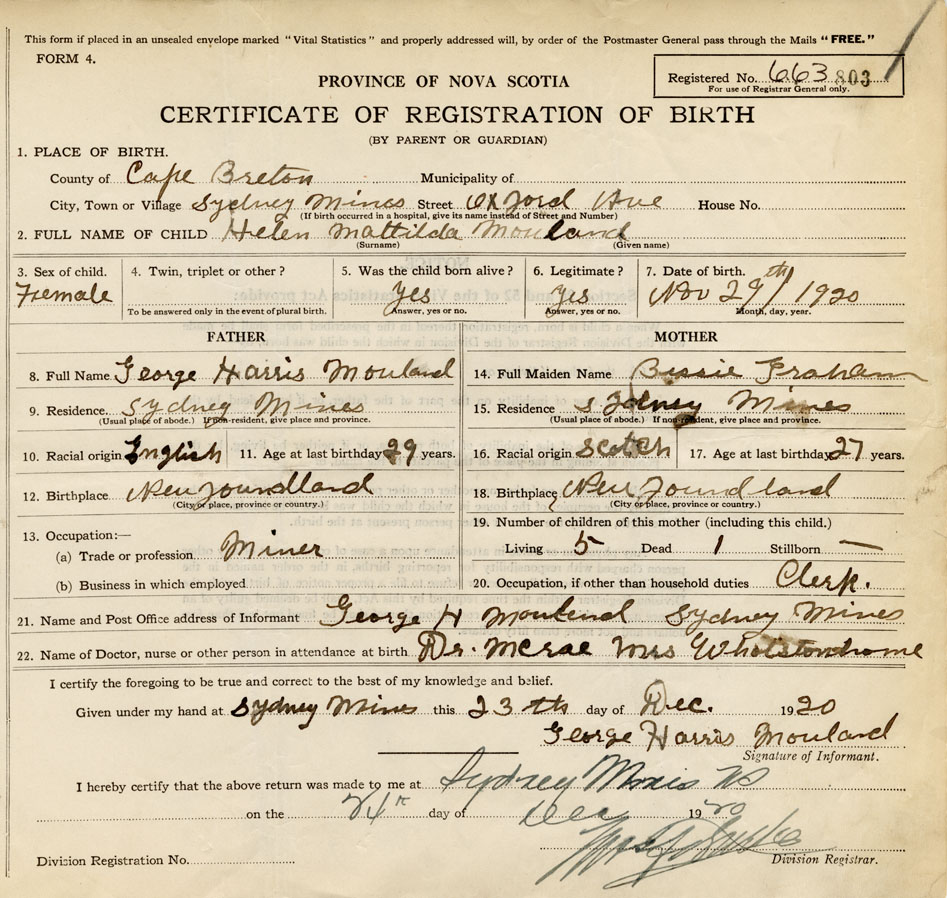 This form if placed in an unsealed envelope marked "Vital Statistics" and properly addressed will, by order of the Postmaster General pass through the Mails "FREE."
FORM 4.
Registered No. 663 803
For use of Registrar General only.
PROVINCE OF NOVA SCOTIA
CERTIFICATE OF REGISTRATION OF BIRTH
(BY PARENT OR GUARDIAN)
1. PLACE OF BIRTH.
County of Cape Breton Municipality of
City, Town or Village Sydney Mines Street Oxford Ave House No.
(If birth occurred in a hospital, give its name instead of Street and Number)
2. FULL NAME OF CHILD Helen Mattilda Mouland
(Surname) (Given name)
3. Sex of child. 4. Twin, triplet or other? 5. Was the child born alive? 6. Legitimate? 7. Date of birth.
Female Yes Yes Nov 29th 1920
To be answered only in the event of plural birth. Answer, yes or no. Answer, yes or no. Month, day, year.
FATHER MOTHER
8. Full Name George Harris Mouland 14. Full Maiden Name Bessie Graham
9. Residence Sydney Mines 15. Residence Sydney Mines
(Usual place of abode.) If non-resident, give place and province. (Usual place of abode.) If non-resident, give place and province.
10. Racial origin English 11. Age at last birthday 29 years. 16. Racial origin Scotch 17. Age at last birthday 27 years.
12. Birthplace New Foundland 18. Birthplace New Foundland
(City or place, province or country.) (City or place, province or country.)
13. Occupation:— 19. Number of children of this mother (including this child.)
(a) Trade or profession Miner Living 5 Dead 1 Stillborn —
(b) Business in which employed 20. Occupation, if other than household duties Clerk.
21. Name and Post Office address of Informant George H Mouland Sydney Mines
22. Name of Doctor, nurse or other person in attendance at birth Dr. McRae Mrs
I certify the foregoing to be true and correct to the best of my knowledge and belief.
Given under my hand at Sydney Mines this 23th day of Dec. 1920
George Harris Mouland
Signature of Informant.
I hereby certify that the above return was made to me at Sydney Mines
on the 24th day of Dec 1920
Division Registration No. Division Registrar.